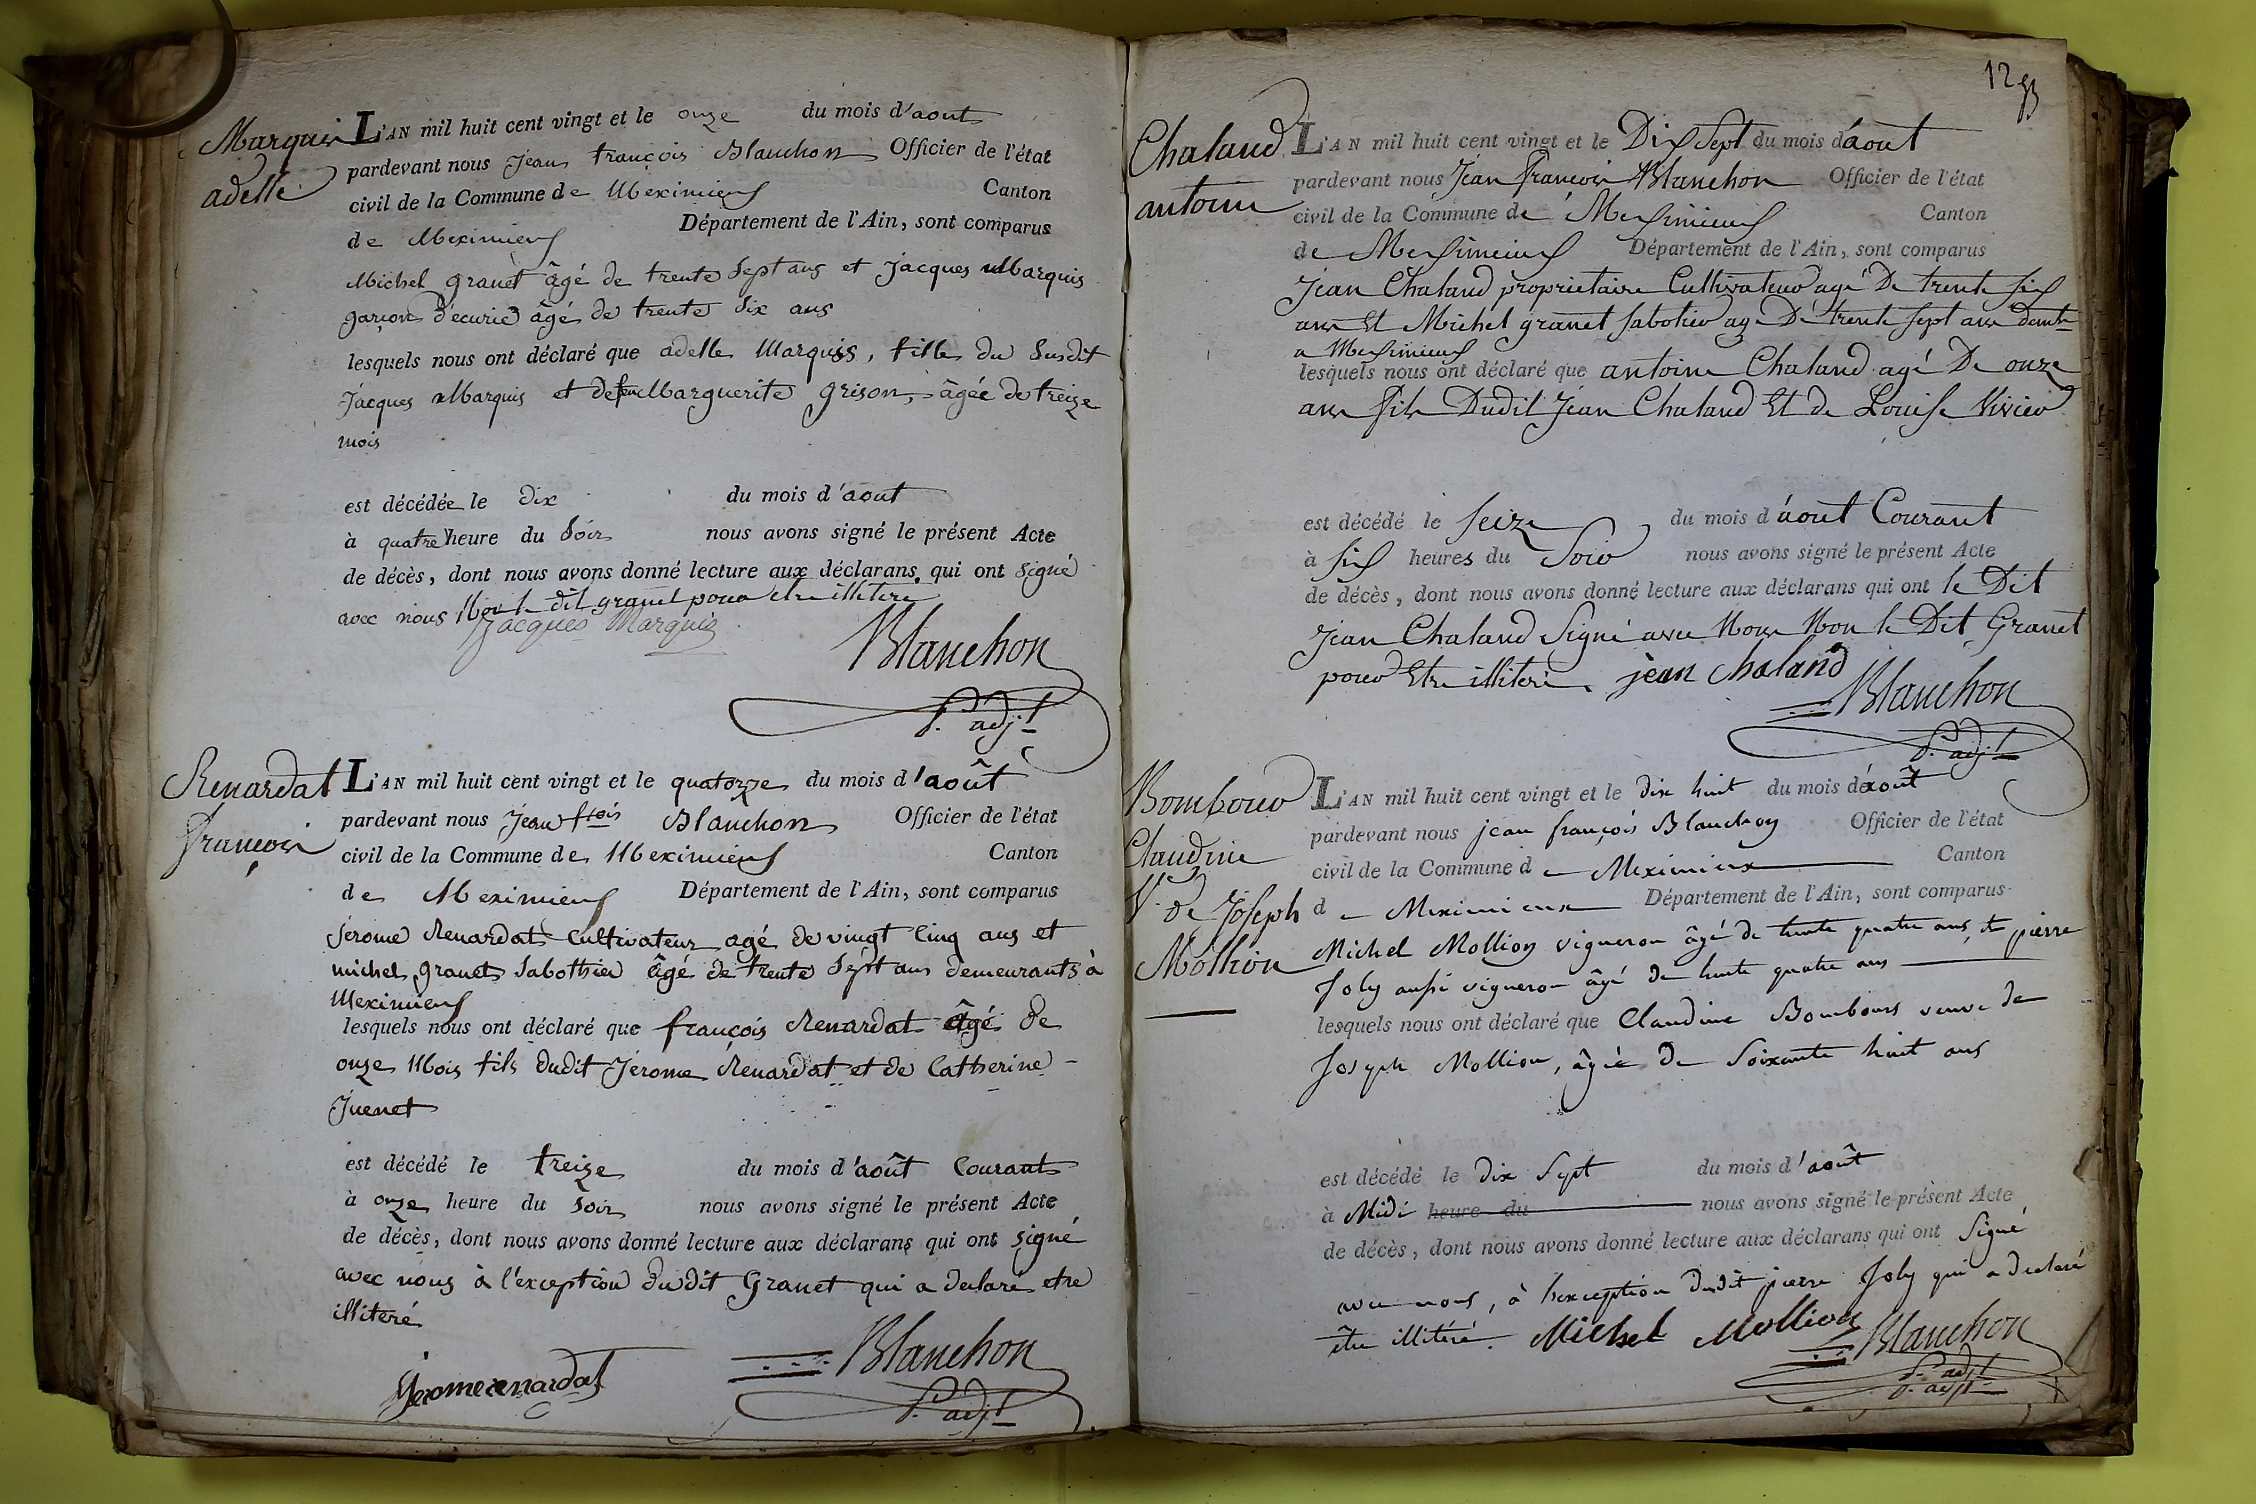 Marquis
adelle
L'AN mil huit cent vingt et le onze du mois d'aout
pardevant nous Jean françois Blanchon Officier de l'état
civil de la Commune de Meximieux Canton
de Meximieux Département de l'Ain, sont comparus
Michel granet âgé de trente Sept ans et Jacques Marquis
garçon d'écurie âgé de trente six ans
lesquels nous ont déclaré que adelle Marquis, fille du Susdit
Jacques Marquis et de feu Marguerite grison, âgée de treize
mois
est décédée le dix du mois d'aout
à quatre heure du Soir nous avons signé le présent Acte
de décès, dont nous avons donné lecture aux déclarans qui ont signé
avec nous Non le dit granet pour etre illitere
Jacques Marquis
Blanchon
P. adjt
Renardat
françois
L'AN mil huit cent vingt et le quatorze du mois d'août
pardevant nous Jean fcois Blanchon Officier de l'état
civil de la Commune de Meximieux Canton
de Meximieux Département de l'Ain, sont comparus
Jerome Renardat Cultivateur agé de vingt Cinq ans et
michel granet Sabothier âgé de trente Sept ans demeurants à
Meximieux
lesquels nous ont déclaré que françois Renardat âgé de
onze Mois fils dudit Jérome Renardat et de Catherine
Juenet
est décédé le treize du mois d'août Courant
à onze heure du Soir nous avons signé le présent Acte
de décès, dont nous avons donné lecture aux déclarans qui ont signé
avec nous à l'exception du dit Granet qui a déclaré etre
illiteré
Jerome renardat
Blanchon
P. adjt
12
Chaland
antoine
L'AN mil huit cent vingt et le Dix Sept du mois d'aout
pardevant nous Jean francois Blanchon Officier de l'état
civil de la Commune de Meximieux Canton
de Meximieux Département de l'Ain, sont comparus
Jean Chaland proprietaire Cultivateur agé De trente six
ans Et Michel granet Sabotier agé De trente Sept ans demts
a Meximieux
lesquels nous ont déclaré que antoine Chaland agé De onze
ans fils Dudit Jean Chaland Et de Louise Vivier
est décédé le seize du mois d'aout Courant
à six heures du Soir nous avons signé le présent Acte
de décès, dont nous avons donné lecture aux déclarans qui ont le Dit
Jean Chaland Signé avec Nous Non le Dit Granet
pour Etre illiteré. jean chaland
Blanchon
P. adjt
Bombour
Claudine
Ve de Joseph
Mollion
L'AN mil huit cent vingt et le dix huit du mois d'août
pardevant nous jean françois Blanchon Officier de l'état
civil de la Commune de Meximieux Canton
de Meximieux Département de l'Ain, sont comparus
Michel Mollion vigneron âgé de trente quatre ans, et pierre
Joly aussi vigneron âgé de trente quatre ans
lesquels nous ont déclaré que Claudine Bombour veuve de
Joseph Mollion, âgée de Soixante huit ans
est décédé le dix Sept du mois d'août
à Midi heure du nous avons signé le présent Acte
de décès, dont nous avons donné lecture aux déclarans qui ont Signé
avec nous, à l'exception dudit pierre Joly qui a declaré
être illitéré. Michel Mollion
Blanchon
P. adjt
P. adjt